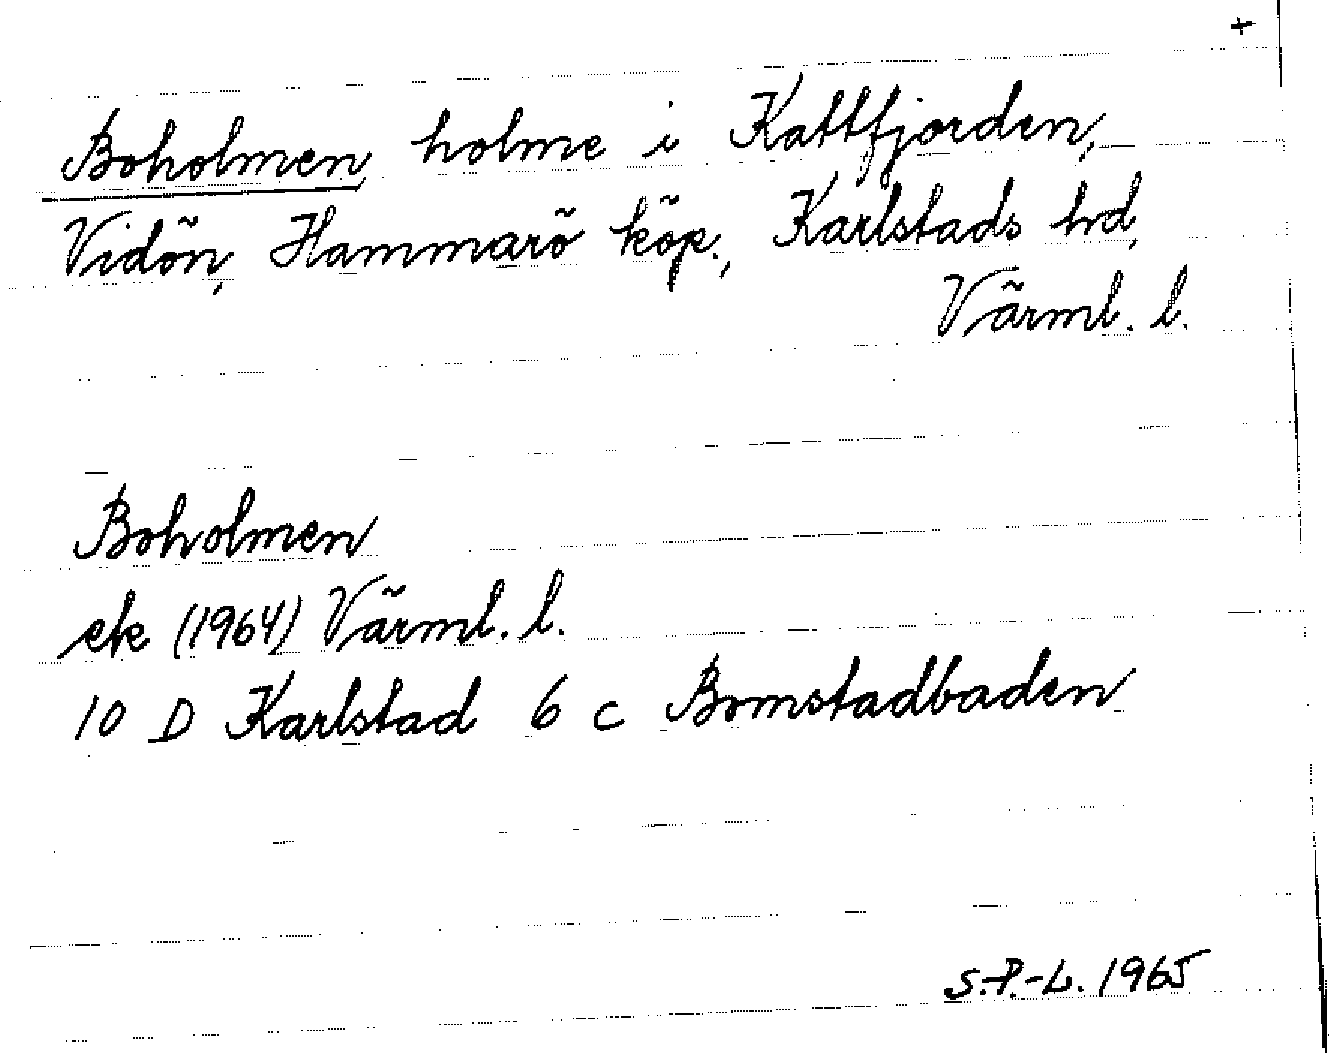 +
Boholmen, holme i Kattfjorden,
Vidön, Hammarö köp., Karlstads hd,
Värml. l.
Boholmen
ek (1964) Värml. l.
10 D Karlstad 6 c Bomstadbaden
S.-P.-L. 1965